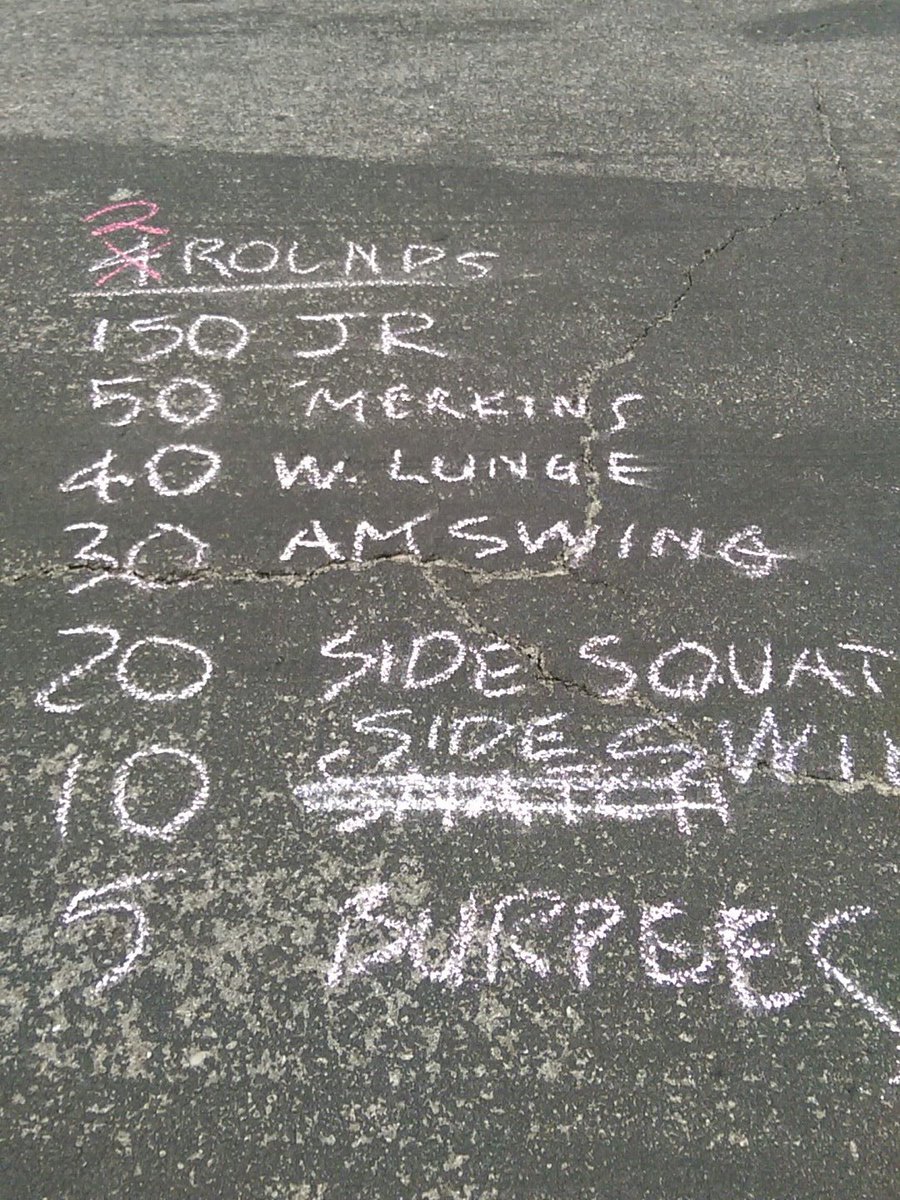 2 ROUNDS
150 JR
50 MERKINS
40 W. LUNGE
30 AM SWING
20 SIDE SQUAT
SIDE SWIN
10
5 BURPEES